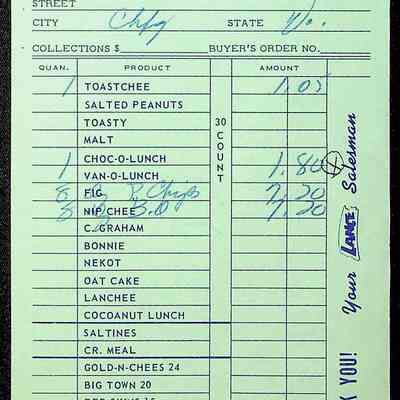 STREET
CITY Chfg STATE Va.
COLLECTIONS $ BUYER'S ORDER NO.
QUAN. PRODUCT AMOUNT
1 TOASTCHEE 1.05
SALTED PEANUTS
TOASTY
MALT
1 CHOC-O-LUNCH 1.80
VAN-O-LUNCH
8 FIG P. Chips 7.20
8 NIP CHEE B.Q 7.20
C. GRAHAM
BONNIE
NEKOT
OAT CAKE
LANCHEE
COCOANUT LUNCH
SALTINES
CR. MEAL
GOLD-N-CHEES 24
BIG TOWN 20
30 COUNT
Your LANCE Salesman
K YOU!